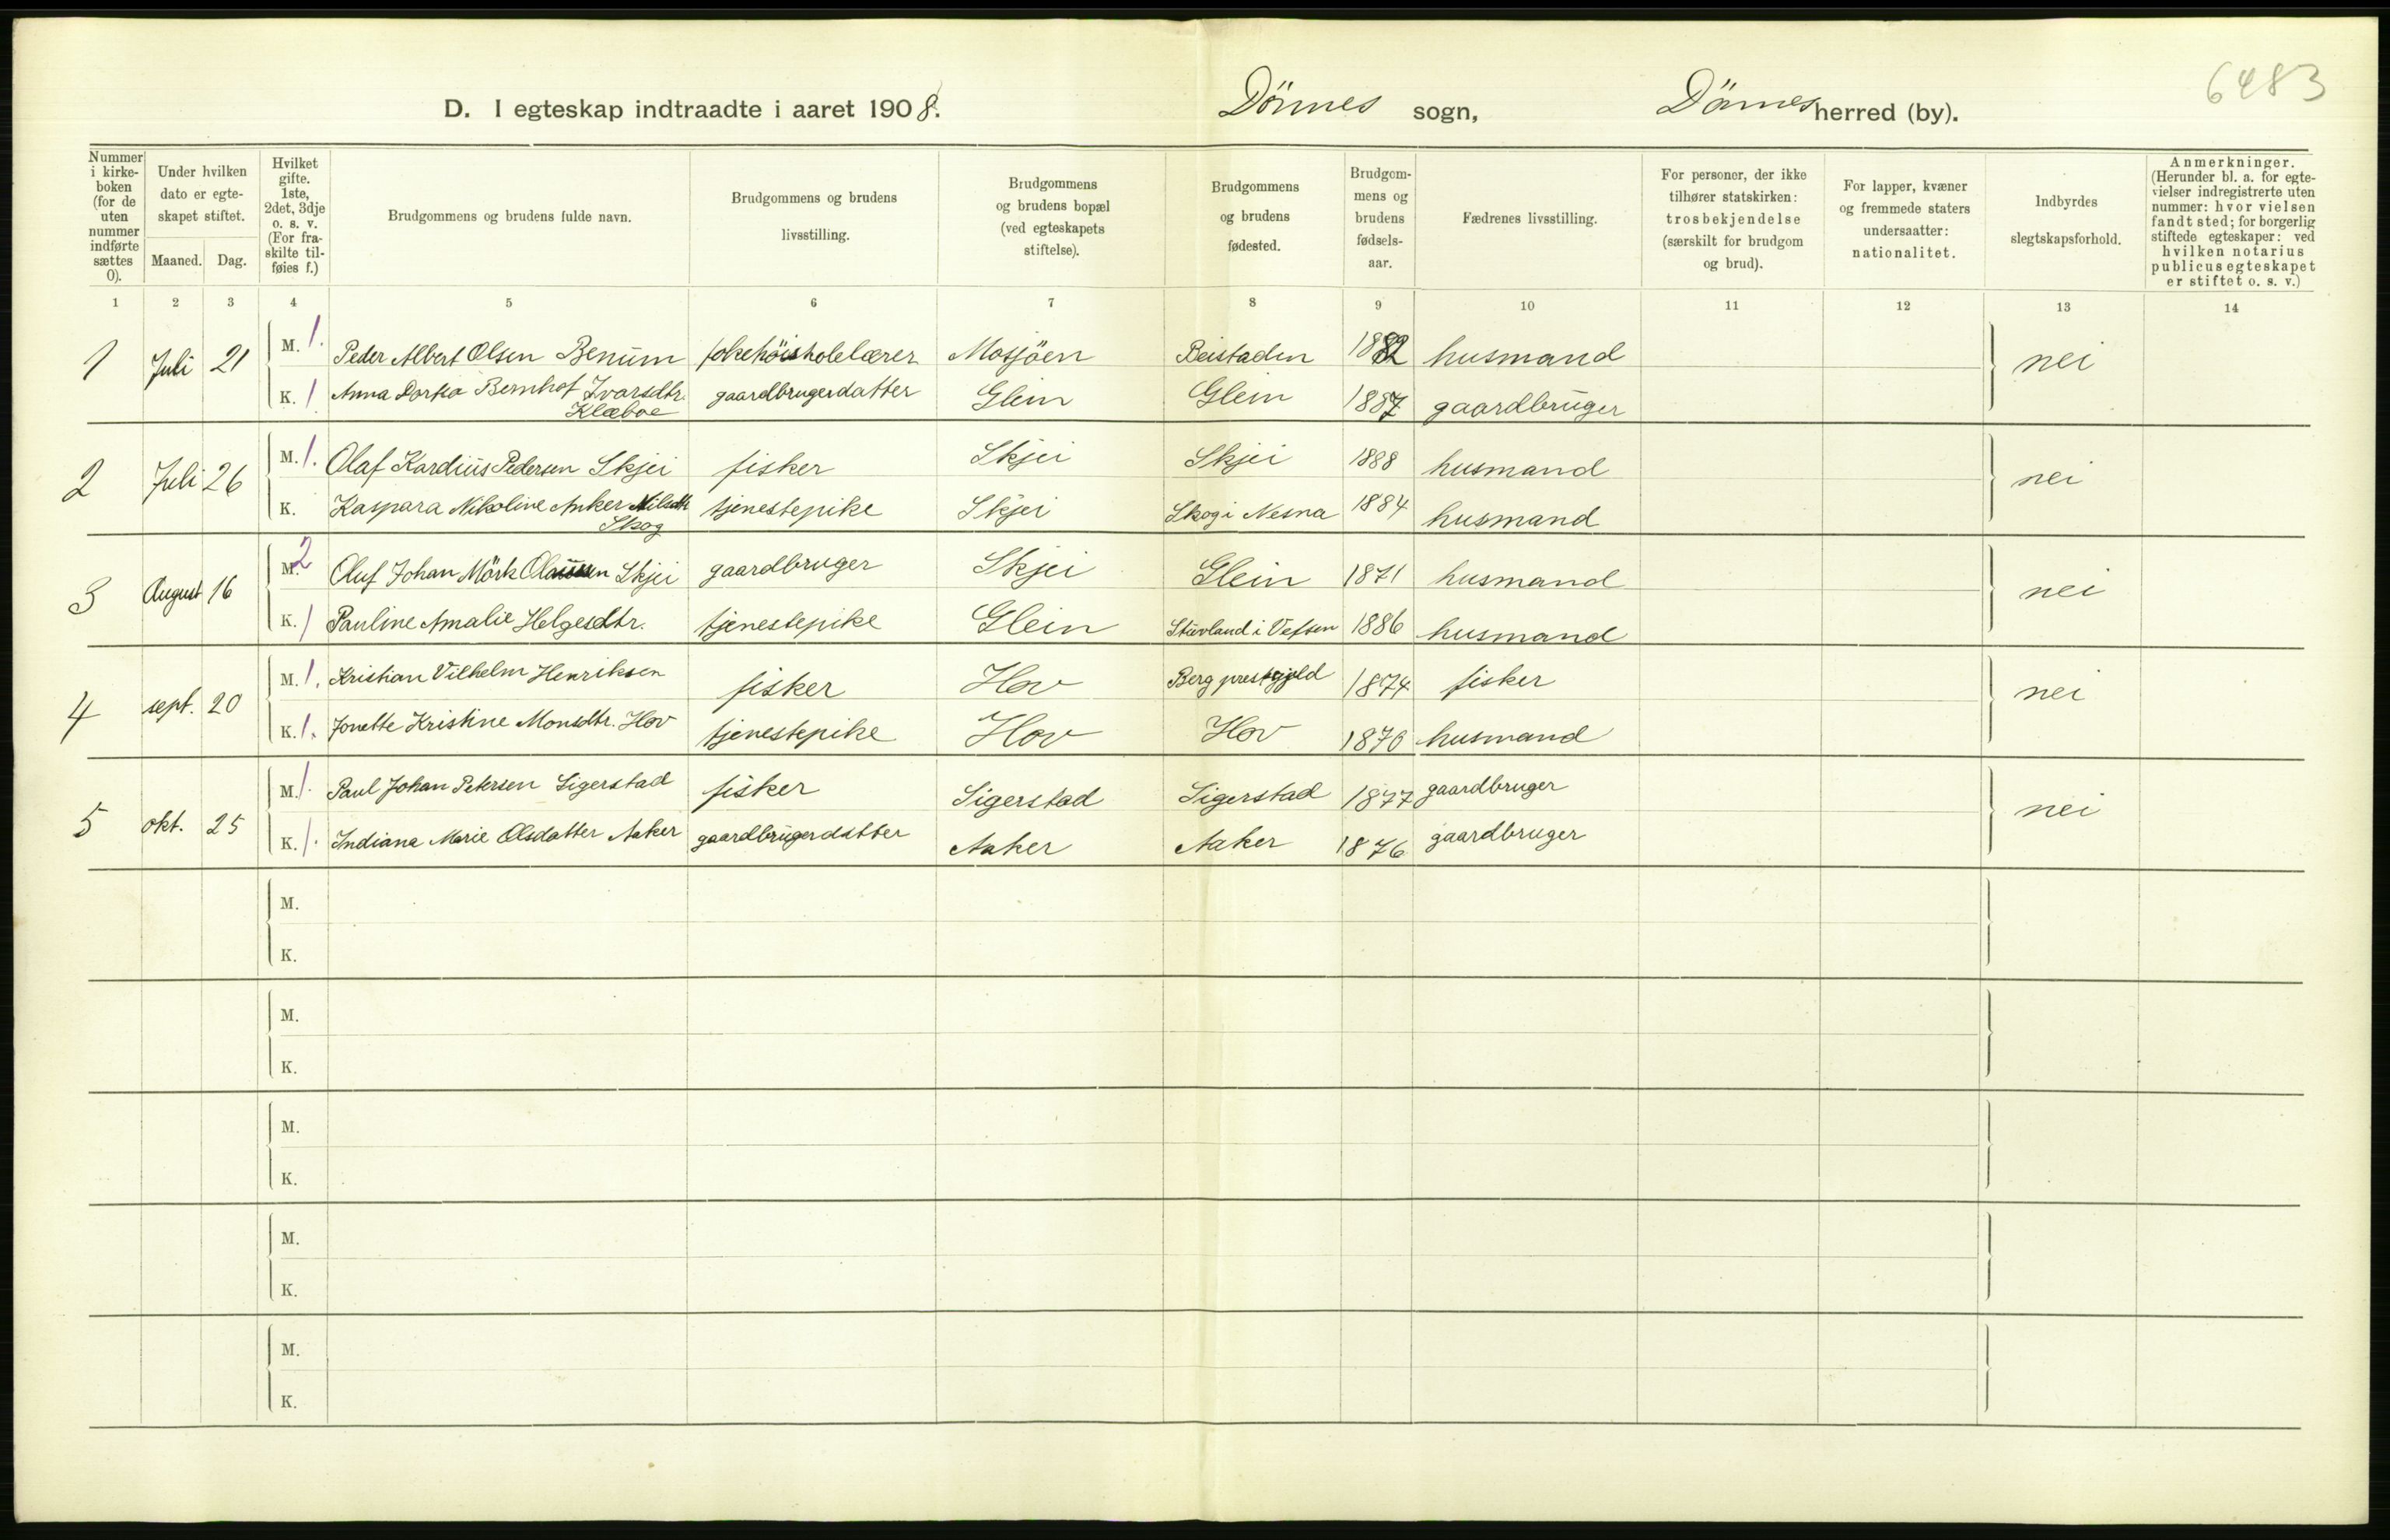 6483
D. I egteskap indtraadte i aaret 1908. Dönnes sogn, Dönnes herred (by).
Nummer i kirke-boken (for de uten nummer indførte sættes 0).
Under hvilken dato er egte-skapet stiftet.
Maaned. Dag.
Hvilket gifte. 1ste, 2det, 3dje o. s. v. (For fra-skilte til-føies f.)
Brudgommens og brudens fulde navn.
Brudgommens og brudens livsstilling.
Brudgommens og brudens bopæl (ved egteskapets stiftelse).
Brudgommens og brudens fødested.
Brudgom-mens og brudens fødsels-aar.
Fædrenes livsstilling.
For personer, der ikke tilhører statskirken: trosbekjendelse (særskilt for brudgom og brud).
For lapper, kvæner og fremmede staters undersaatter: nationalitet.
Indbyrdes slegtskapsforhold.
Anmerkninger. (Herunder bl. a. for egte-vielser indregistrerte uten nummer: hvor vielsen fandt sted; for borgerlig stiftede egteskaper: ved hvilken notarius publicus egteskapet er stiftet o. s. v.)
1 2 3 4 5 6 7 8 9 10 11 12 13 14
1 Juli 21 M. 1. Peder Albert Olsen Benum folkehöiskolelærer Mosjöen Beistaden 1882 husmand nei
K. 1 Anna Dortea Bernhof Ivarsdtr. Klæboe gaardbrugerdatter Glein Glein 1887 gaardbruger
2 Juli 26 M. 1. Olaf Kardius Pedersen Skjei fisker Skjei Skjei 1888 husmand nei
K. Kaspara Nikoline Anker Nilsdtr Skog tjenestepike Skjei Skog i Nesna 1884 husmand
3 August 16 M. 2 Oluf Johan Mörk Olaussen Skjei gaardbruger Skjei Glein 1871 husmand nei
K. 1 Pauline Amalie Helgesdtr. tjenestepike Glein Stuvland i Vefsen 1886 husmand
4 sept. 20 M. 1. Kristian Vilhelm Henriksen fisker Hov Berg prestegjeld 1874 fisker nei
K. 1. Jonette Kristine Monsdtr. Hov tjenestepike Hov Hov 1870 husmand
5 okt. 25 M. 1. Paul Johan Petersen Sigerstad fisker Sigerstad Sigerstad 1877 gaardbruger nei
K. 1. Indiana Marie Olsdatter Aaker gaardbrugerdatter Aaker Aaker 1876 gaardbruger
M.
K.
M.
K.
M.
K.
M.
K.
M.
K.